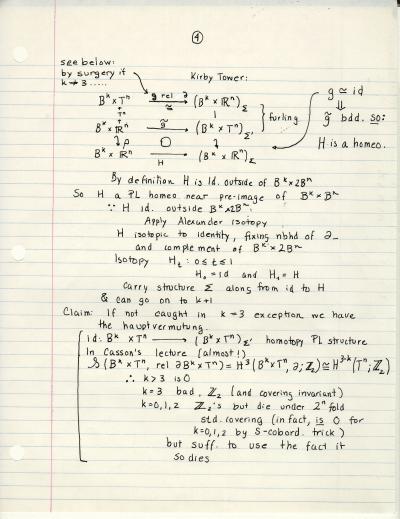 ④
see below:
by surgery if
k ≠ 3 .....
Kirby Tower:
B^k × T^n  g rel ∂ ≅ →  (B^k × ℝ^n)_Σ
T^n
B^k × ℝ^n  g̃ ≅ →  (B^k × T^n)_Σ'
} furling
g ≃ id
⇓
g̃ bdd. so:
H is a homeo.
B^k × ℝ^n  H →  (B^k × ℝ^n)_Σ
By definition H is Id. outside of B^k × 2B^n
So H a PL homeo near pre-image of B^k × B^n
∵ H id. outside B^k × 2B^n.
Apply Alexander isotopy
H isotopic to identity, fixing nbhd of ∂_
and complement of B^k × 2B^n
Isotopy H_t : 0 ≤ t ≤ 1
H_0 = id and H_1 = H
Carry structure Σ along from id to H
& can go on to k+1
Claim: If not caught in k = 3 exception we have
the hauptvermutung.
id: B^k × T^n → (B^k × T^n)_Σ' homotopy PL structure
In Casson's lecture (almost!)
𝒮(B^k × T^n, rel ∂B^k × T^n) = H^3(B^k × T^n, ∂; ℤ_2) ≅ H^{3-k}(T^n; ℤ_2)
∴ k > 3 is 0
k = 3 bad, ℤ_2 (and covering invariant)
k = 0,1,2 ℤ_2's but die under 2^n fold
std. covering (in fact, is 0 for
k = 0,1,2 by S-cobord. trick)
but suff. to use the fact it
so dies